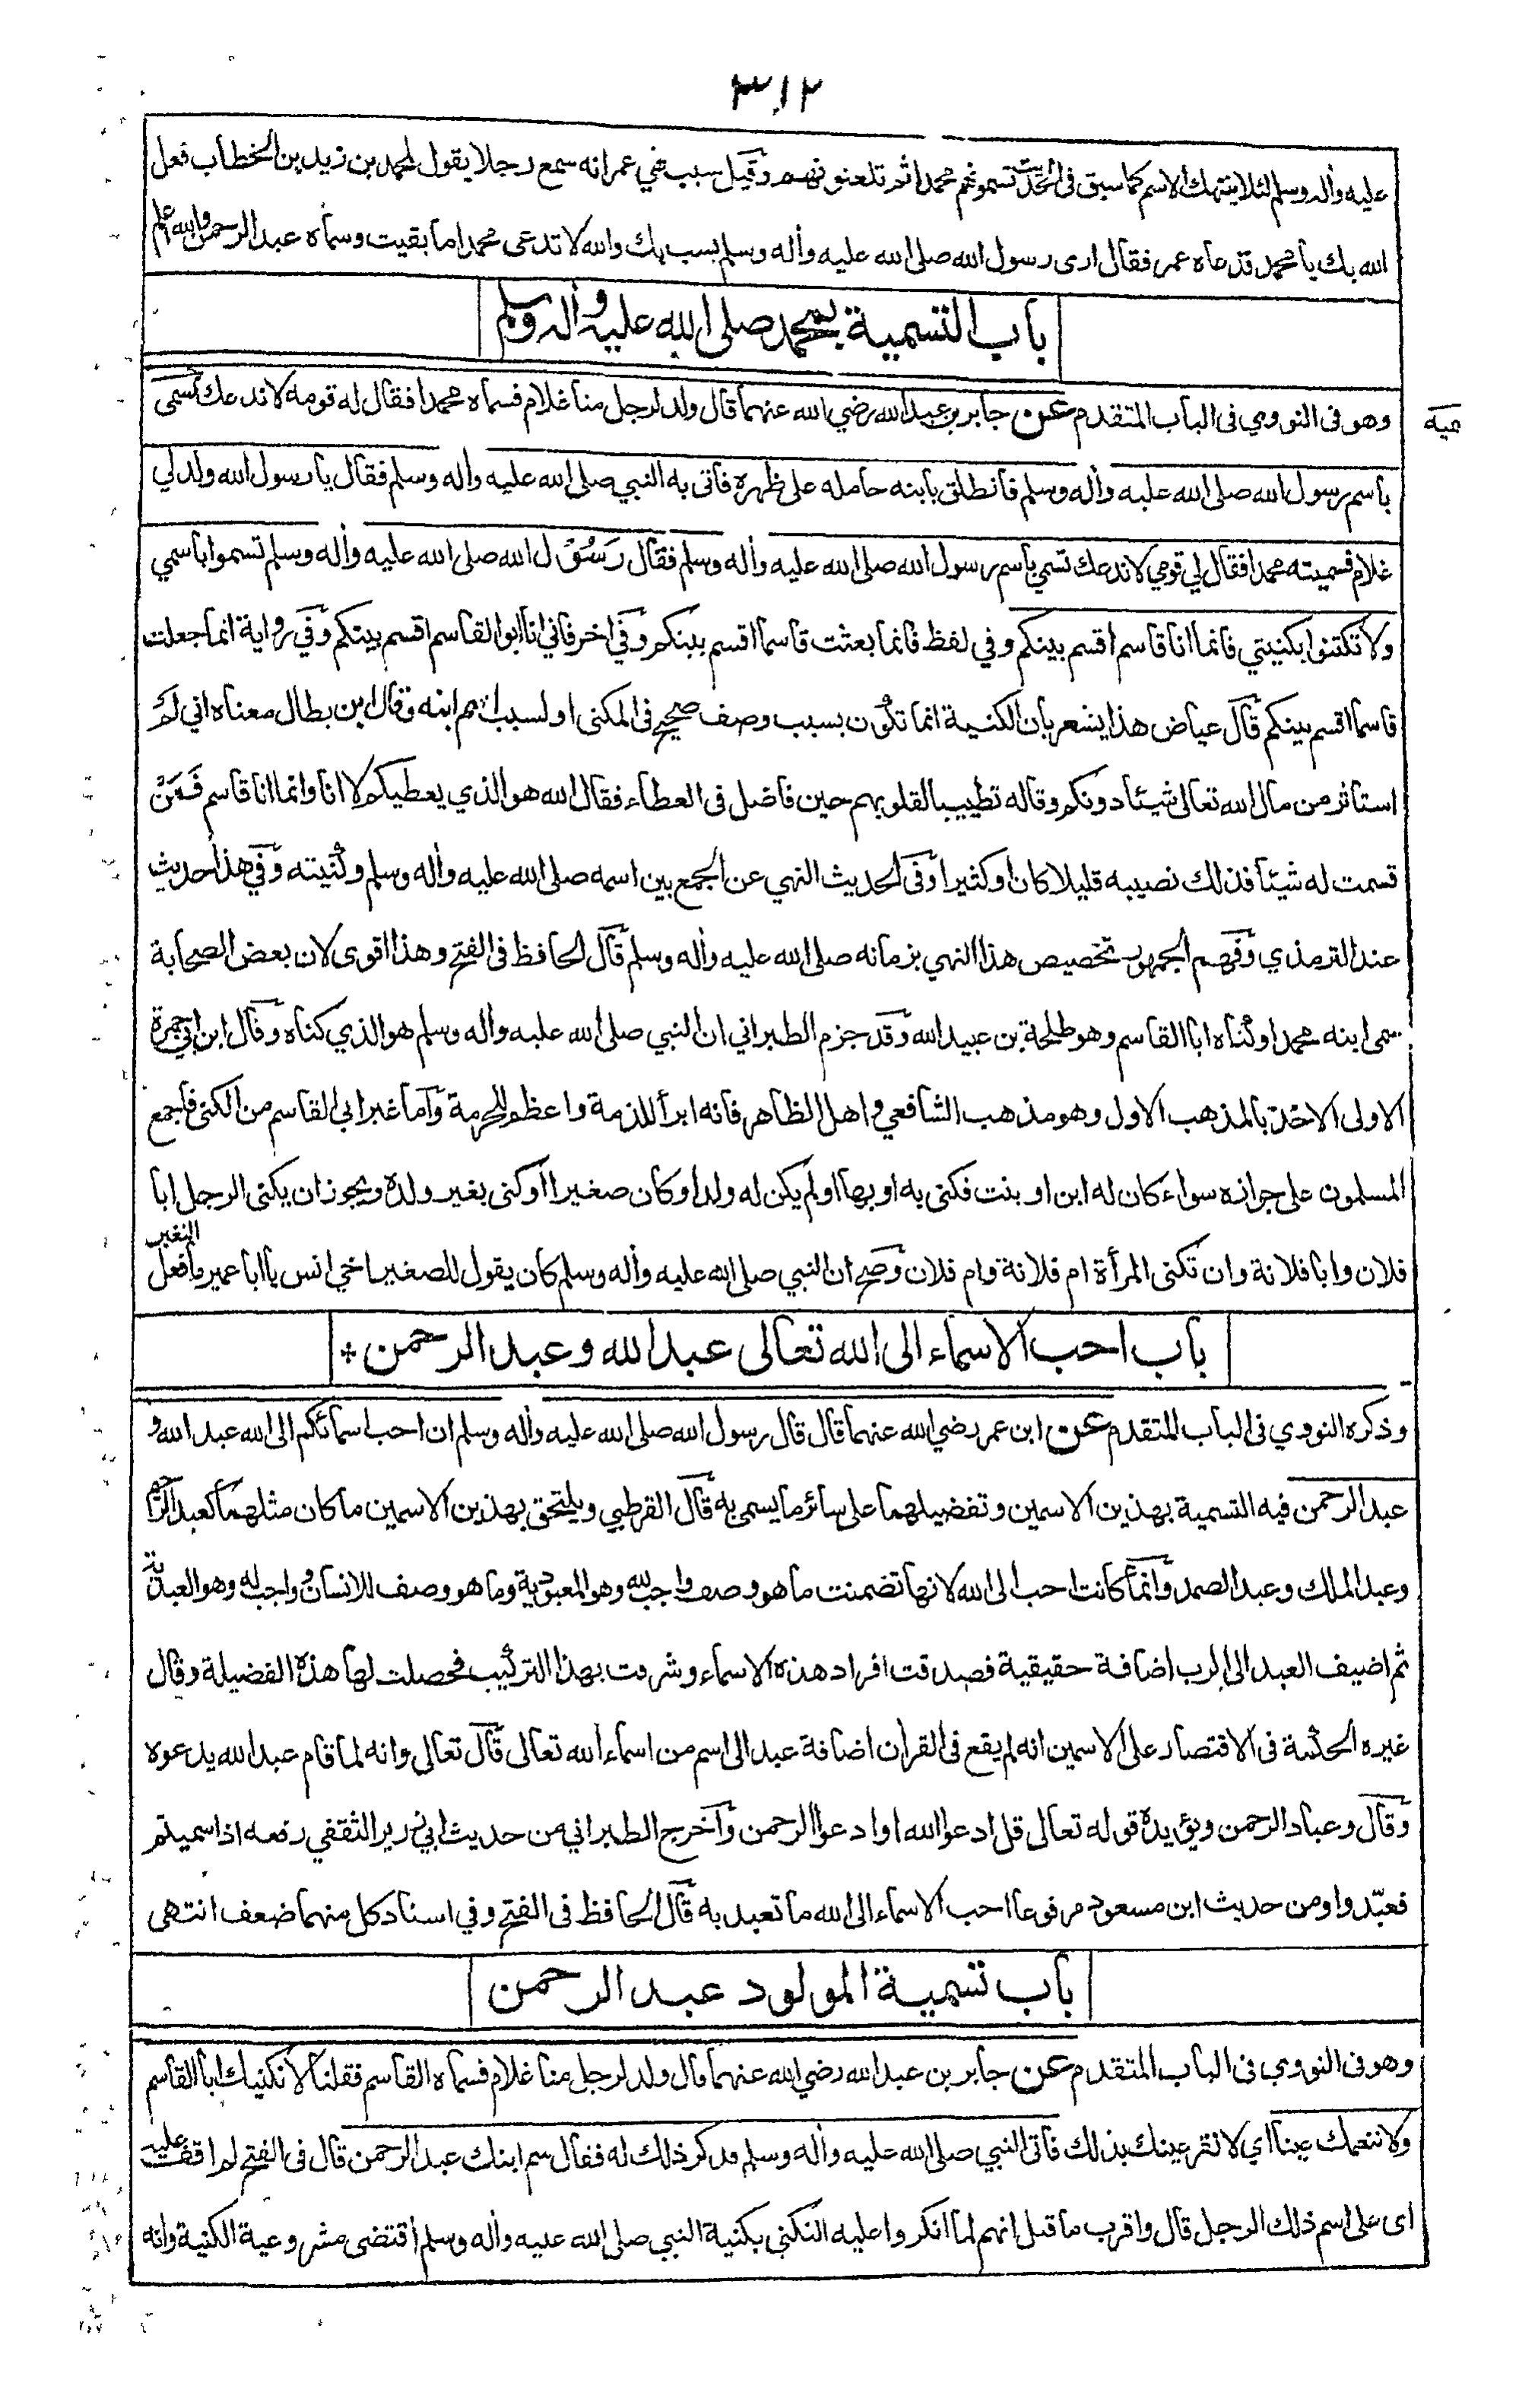 ٣١٢
عليه وأله وسلم لئلا ينتهك الاسم كما سبق فى الحديث تسمونهم محمدا ثم تلعنونهم وقيل سبب نهي عمر انه سمع رجلا يقول لمحمد بن زيد بن الخطاب فعل
الله بك يا محمد فدعاه عمر فقال ارى رسول الله صلى الله عليه وأله وسلم يسب بك والله لا تدعى محمدا ما بقيت وسماه عبد الرحمن والله اعلم
باب التسمية بمحمد صلى الله عليه وأله وسلم
وهو فى النووي فى الباب المتقدم عن جابر بن عبد الله رضي الله عنهما قال ولد لرجل منا غلام فسماه محمدا فقال له قومه لا ندعك تسمى
باسم رسول الله صلى الله عليه وأله وسلم فانطلق بابنه حامله على ظهره فاتى به النبي صلى الله عليه وأله وسلم فقال يا رسول الله ولد لي
غلام فسميته محمدا فقال لي قومي لا ندعك تسمي باسم رسول الله صلى الله عليه وأله وسلم فقال رَسُوْل الله صلى الله عليه وأله وسلم تسموا باسمي
ولا تكتنوا بكنيتي فانما انا قاسم اقسم بينكم وفي لفظ فانما بعثت قاسما اقسم بينكم وفي اخر فاني انا ابو القاسم اقسم بينكم وفي رواية انما جعلت
قاسما اقسم بينكم قال عياض هذا يشعر بان الكنية انما تكون بسبب وصف صحيح فى المكنى او لسبب اسم ابنه وقال ابن بطال معناه اني لم
استاثر من مال الله تعالى شيئا دونكم وقاله تطييبا لقلوبهم حين فاضل فى العطاء فقال الله هو الذي يعطيكم لا انا وانما انا قاسم فَمَنْ
قسمت له شيئا فذلك نصيبه قليلا كان او كثيرا وفى الحديث النهي عن الجمع بين اسمه صلى الله عليه وأله وسلم وكنيته وفي هذا حديث
عند الترمذي وفهم الجمهور تخصيص هذا النهي بزمانه صلى الله عليه وأله وسلم قال الحافظ فى الفتح وهذا اقوى لان بعض الصحابة
سمى ابنه محمدا وكناه ابا القاسم وهو طلحة بن عبيد الله وقد جزم الطبراني ان النبي صلى الله عليه وأله وسلم هو الذي كناه وقال ابن ابي جمرة
الاولى الاخذ بالمذهب الاول وهو مذهب الشافعي واهل الظاهر فانه ابرأ للذمة واعظم للحرمة وأما غير ابي القاسم من الكنى فاجمع
المسلمون على جوازه سواء كان له ابن او بنت فكنى به او بها او لم يكن له ولد او كان صغيرا او كنى بغير ولده ويجوز ان يكنى الرجل ابا
فلان وابا فلانة وان تكنى المرأة ام فلانة وام فلان وصح ان النبي صلى الله عليه وأله وسلم كان يقول للصغير اخي انس يا ابا عمير ما فعل النغير
باب احب الاسماء الى الله تعالى عبد الله وعبد الرحمن *
وذكره النووي فى الباب المتقدم عن ابن عمر رضي الله عنهما قال قال رسول الله صلى الله عليه وأله وسلم ان احب اسمائكم الى الله عبد الله و
عبد الرحمن فيه التسمية بهذين الاسمين وتفضيلهما على سائر ما يسمى به قال القرطبي ويلتحق بهذين الاسمين ما كان مثلهما كعبد الرحيم
وعبد الملك وعبد الصمد وانما كانت احب الى الله لانها تضمنت ما هو وصف واجب لله وهو المعبودية وما هو وصف للانسان وواجب له وهو العبدية
ثم اضيف العبد الى الرب اضافة حقيقية فصدقت افراد هذه الاسماء وشرفت بهذا التركيب فحصلت لها هذه الفضيلة وقال
غيره الحكمة فى الاقتصار على الاسمين انه لم يقع فى القران اضافة عبد الى اسم من اسماء الله تعالى قال تعالى وانه لما قام عبد الله يدعوه
وقال وعباد الرحمن ويؤيده قوله تعالى قل ادعوا الله او ادعوا الرحمن وأخرج الطبراني من حديث ابي زرير الثقفي رفعه اذا سميتم
فعبّدوا ومن حديث ابن مسعود مرفوعا احب الاسماء الى الله ما تعبد به قال الحافظ فى الفتح وفي اسناد كل منهما ضعف انتهى
باب تسمية المولود عبد الرحمن
وهو فى النووي فى الباب المتقدم عن جابر بن عبد الله رضي الله عنهما قال ولد لرجل منا غلام فسماه القاسم فقلنا لا نكنيك ابا القاسم
ولا ننعمك عينا اي لا نقر عينك بذلك فأتى النبي صلى الله عليه وأله وسلم فذكر ذلك له فقال سم ابنك عبد الرحمن قال فى الفتح لم اقف عليه
اى على اسم ذلك الرجل قال واقرب ما قيل انهم لما انكروا عليه التكني بكنية النبي صلى الله عليه وأله وسلم اقتضى مشروعية الكنية وانه